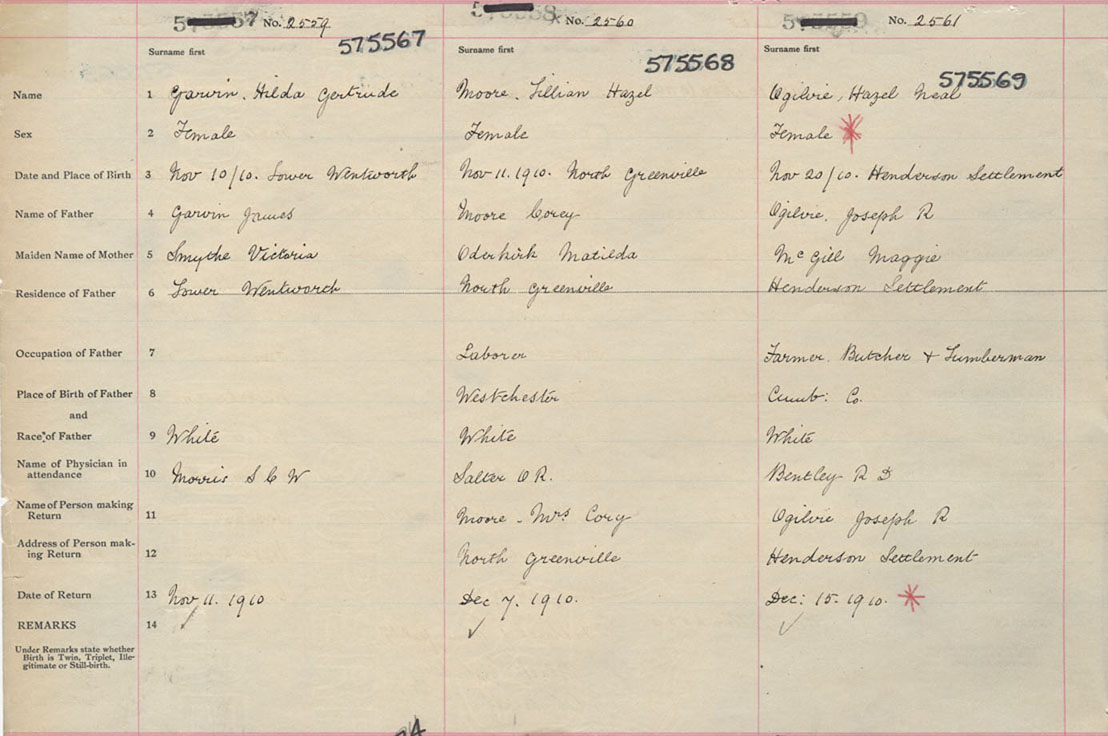 No. 2559 No. 2560 No. 2561
575567 575568 575569
Surname first Surname first Surname first
Name 1 Garwin, Hilda Gertrude Moore, Lillian Hazel Ogilvie, Hazel Neal
Sex 2 Female Female Female
Date and Place of Birth 3 Nov 10/10. Lower Wentworth Nov 11. 1910. North Greenville Nov 20/10. Henderson Settlement
Name of Father 4 Garwin James Moore Corey Ogilvie, Joseph R
Maiden Name of Mother 5 Smythe Victoria Oderkirk Matilda McGill Maggie
Residence of Father 6 Lower Wentworth North Greenville Henderson Settlement
Occupation of Father 7 Laborer Farmer. Butcher + Lumberman
Place of Birth of Father 8 Westchester Cumb: Co.
and
Race of Father 9 White White White
Name of Physician in
attendance 10 Morris S C W Salter O R. Bentley R D
Name of Person making
Return 11 Moore - Mrs Cory Ogilvie Joseph R
Address of Person mak-
ing Return 12 North Greenville Henderson Settlement
Date of Return 13 Nov 11. 1910 Dec 7. 1910. Dec: 15. 1910.
REMARKS 14
Under Remarks state whether
Birth is Twin, Triplet, Ille-
gitimate or Still-birth.